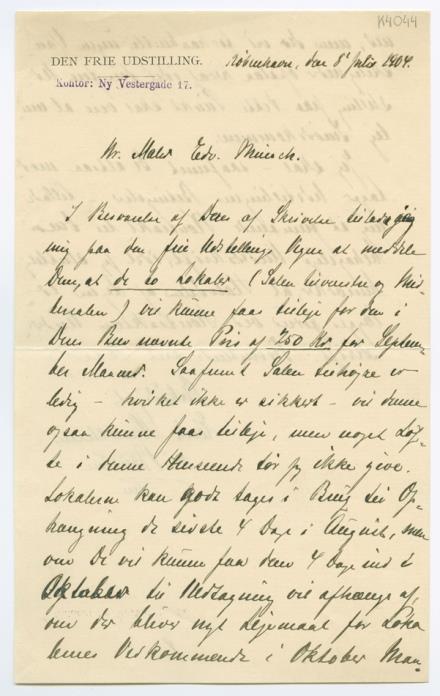 K4044
DEN FRIE UDSTILLING.
København, den 8' Julis 1904.
Kontor: Ny Vestergade 17.
Hr. Maler Edv. Munch.
I Besvarelse af Deres af Skrivelse tillader jeg
mig paa den frie Udstillings Vegne at meddele
Dem, at de to Lokaler (Salen tilvenstre og Mid-
tersalen) vil kunne faas tilleje for den i
Deres Brev nævnte Pris af 250 Kr. for Septem-
ber Maaned. Saafremt Salen tilhøjre er
ledig – hvilket ikke er sikkert – vil denne
ogsaa kunne faas tilleje, men noget Løf-
te i denne Henseende tør jeg ikke give.
Lokalerne kan godt tages i Brug til Op-
hængning de sidste 4 Dage i August, men
om De vil kunne faa dem 4 Dage ind i
Oktober til Nedtagning vil afhænge af,
om der bliver nyt Lejemaal for Loka
lernes Vedkommende i Oktober Maa-